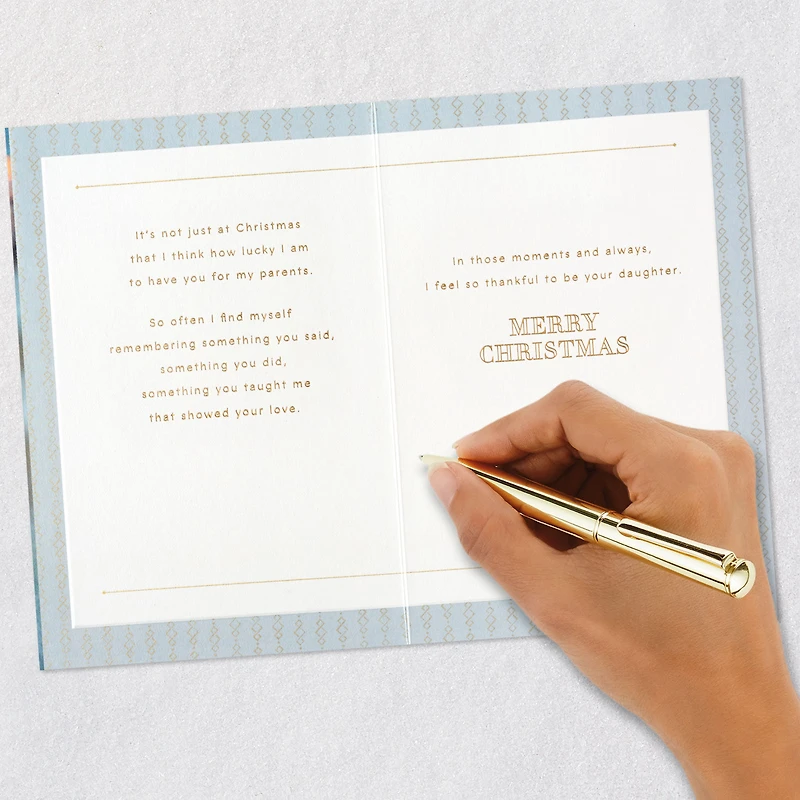 It's not just at Christmas
that I think how lucky I am
to have you for my parents.
So often I find myself
remembering something you said,
something you did,
something you taught me
that showed your love.
In those moments and always,
I feel so thankful to be your daughter.
MERRY
CHRISTMAS